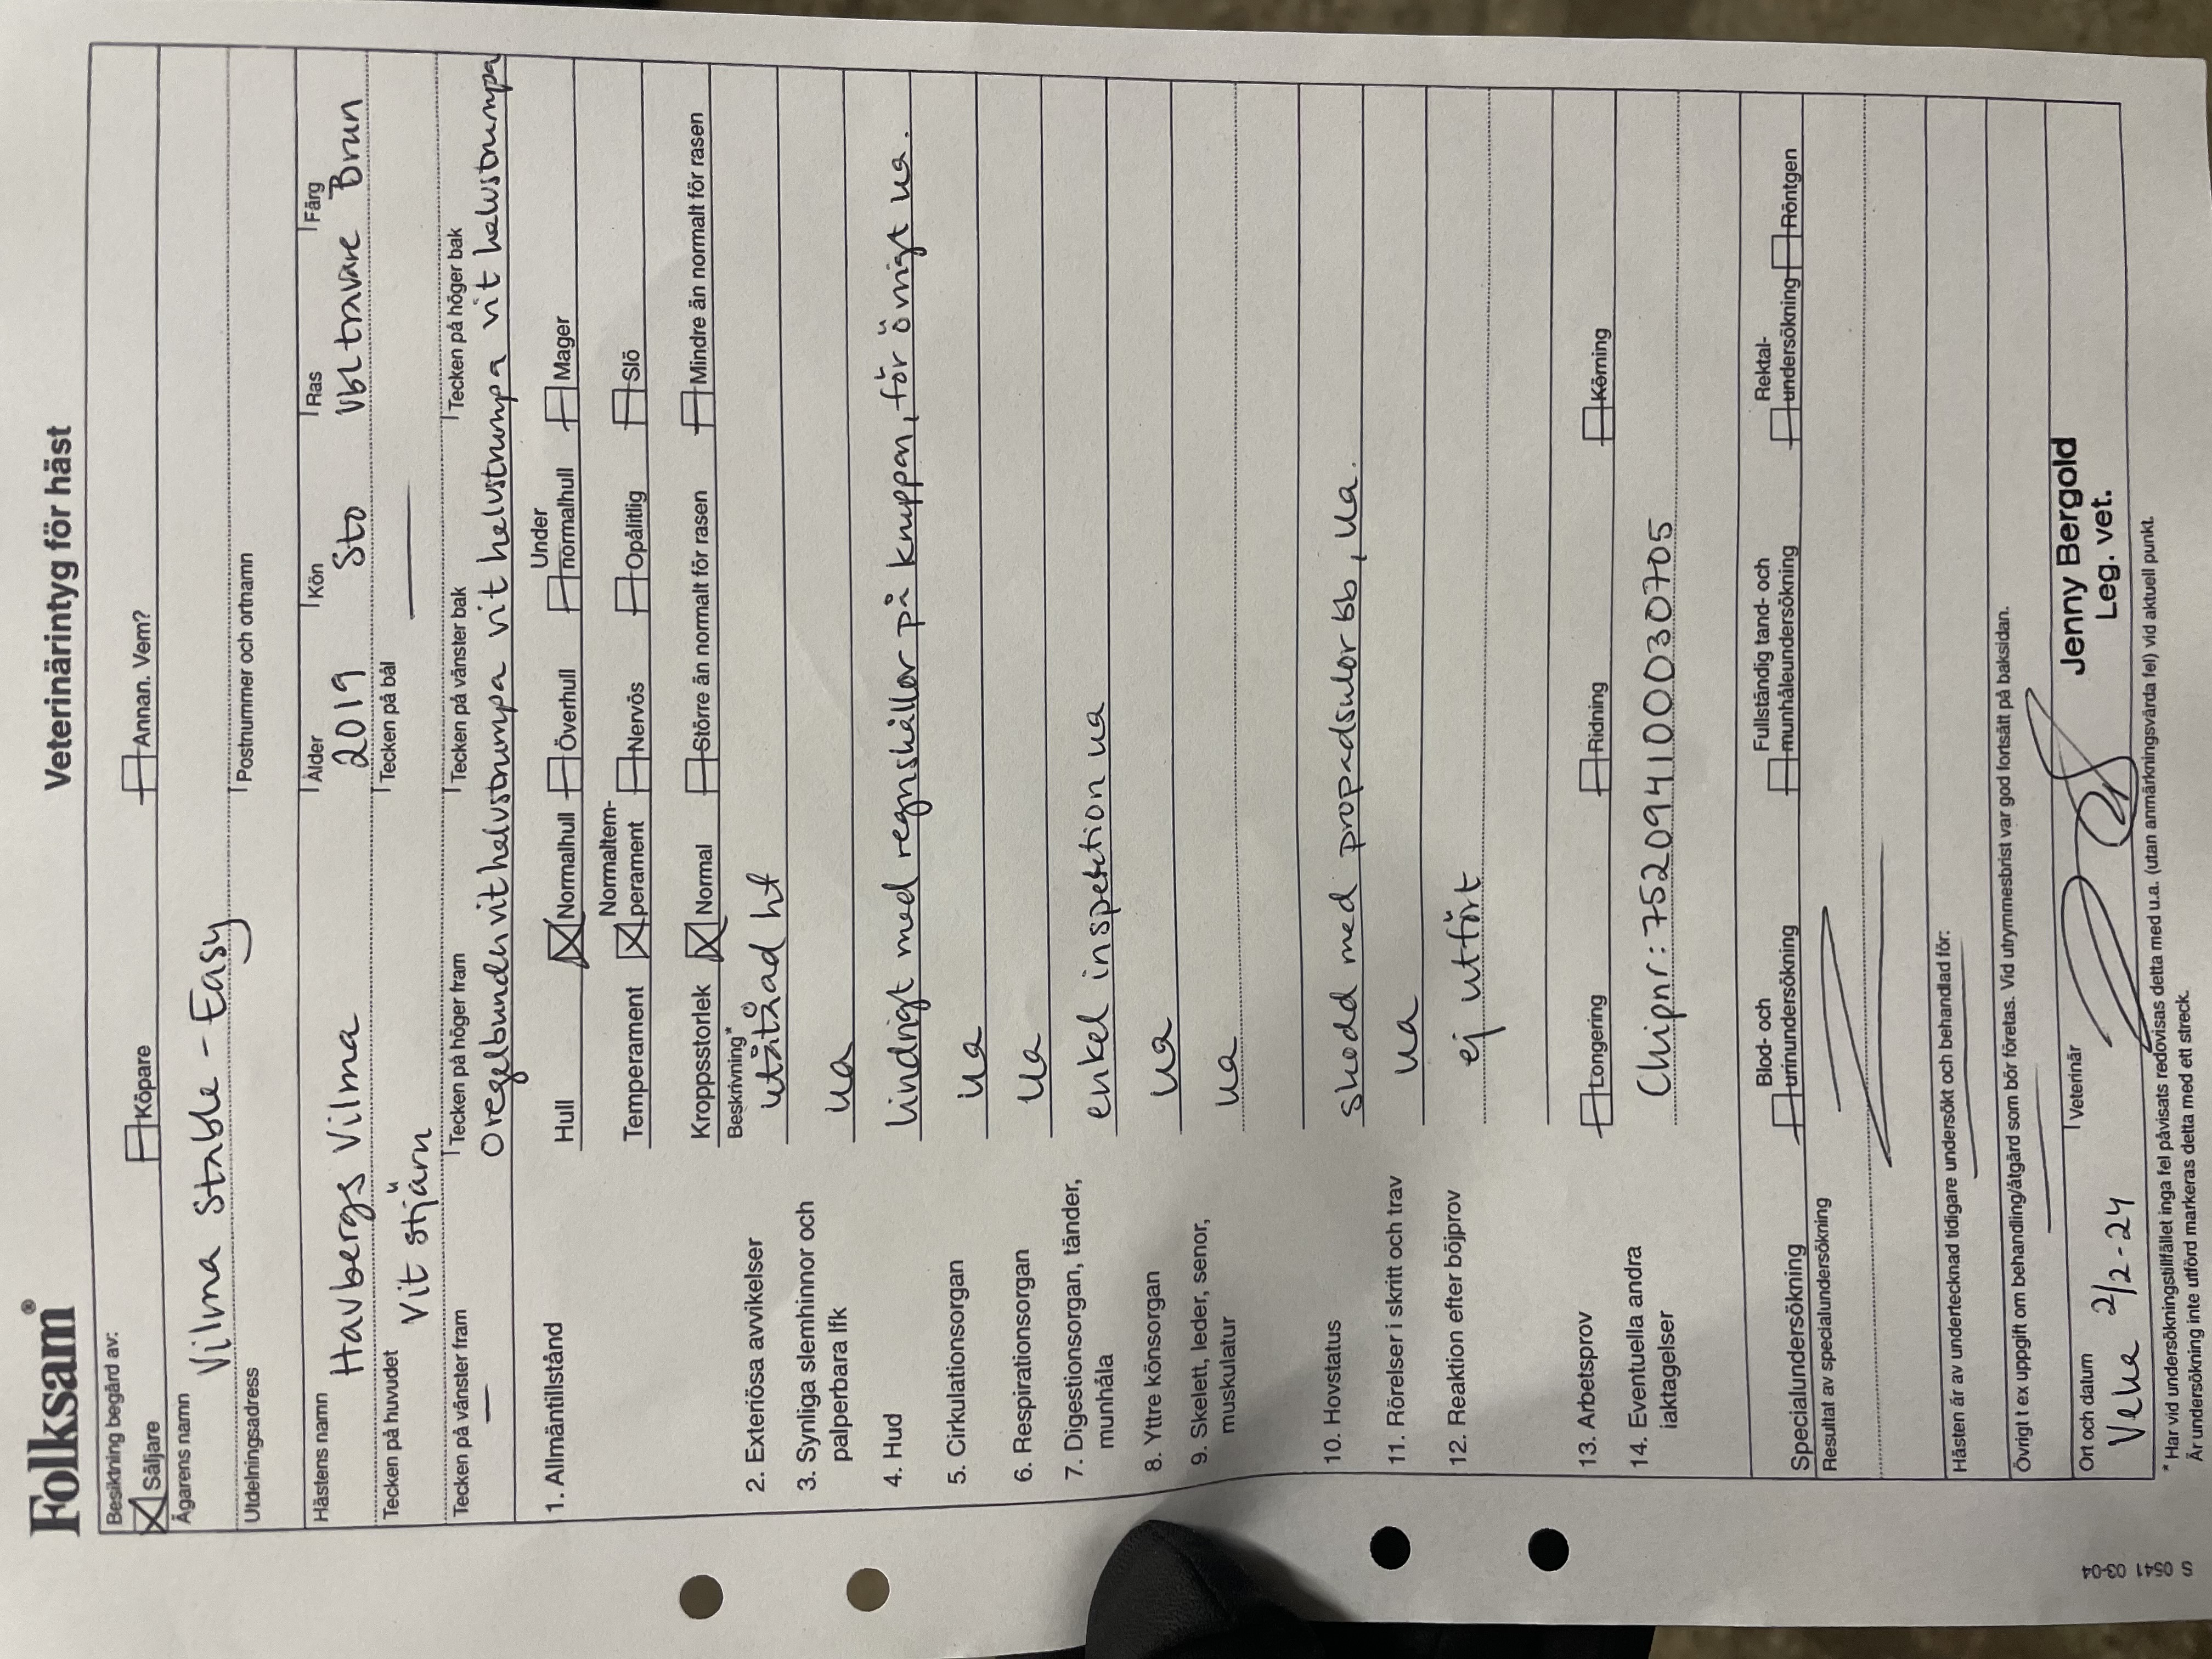 Folksam®
Veterinärintyg för häst
Besiktning begärd av:
Säljare Köpare Annan. Vem?
Ägarens namn
Vilma Stable-Easy
Utdelningsadress Postnummer och ortnamn
Hästens namn Ålder Kön Ras Färg
Havbergs Vilma 2019 Sto Vbl travare Brun
Tecken på huvudet Tecken på bål
Vit stjärn
Tecken på vänster fram Tecken på höger fram Tecken på vänster bak Tecken på höger bak
— Oregelbunden vit helvstrumpa vit helvstrumpa vit helvstrumpa
1. Allmäntillstånd Hull Normalhull Överhull Under normalhull Mager
Temperament Normaltem-perament Nervös Opålitlig Slö
Kroppsstorlek Normal Större än normalt för rasen Mindre än normalt för rasen
Beskrivning*
2. Exteriösa avvikelser utåtåad hf
3. Synliga slemhinnor och
palperbara lfk ua
4. Hud lindrigt med regnskållor på kruppan, för övrigt ua.
5. Cirkulationsorgan ua
6. Respirationsorgan ua
7. Digestionsorgan, tänder,
munhåla enkel inspektion ua
8. Yttre könsorgan ua
9. Skelett, leder, senor,
muskulatur ua
10. Hovstatus skodd med proppadsulor bb, ua.
11. Rörelser i skritt och trav ua
12. Reaktion efter böjprov ej utfört
13. Arbetsprov Longering Ridning Körning
14. Eventuella andra
iakttagelser Chipnr: 752094100030705
Specialundersökning Blod- och urinundersökning Fullständig tand- och munhåleundersökning Rektal-undersökning Röntgen
Resultat av specialundersökning
Hästen är av undertecknad tidigare undersökt och behandlad för:
Övrigt t ex uppgift om behandling/åtgärd som bör företas. Vid utrymmesbrist var god fortsätt på baksidan.
Ort och datum Veterinär
2/2-24
Jenny Bergold
Leg. vet.
* Har vid undersökningstillfället inga fel påvisats redovisas detta med u.a. (utan anmärkningsvärda fel) vid aktuell punkt.
Är undersökning inte utförd markeras detta med ett streck.
S 0541 03-04